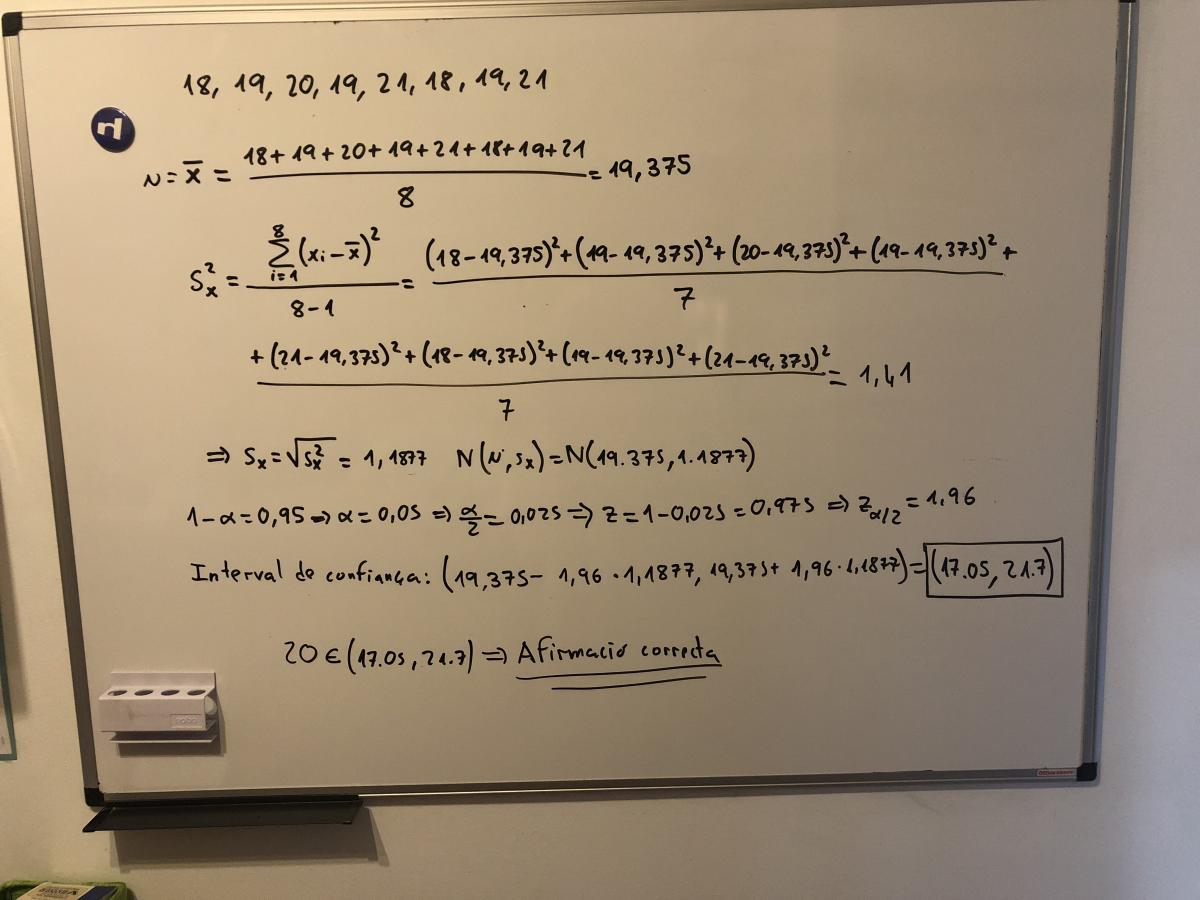 18, 19, 20, 19, 21, 18, 19, 21
N = x̄ = (18+19+20+19+21+18+19+21)/8 = 19,375
S²ₓ = Σ⁸ᵢ₌₁(xᵢ-x̄)²/(8-1) = (18-19,375)²+(19-19,375)²+(20-19,375)²+(19-19,375)²+ / 7
+(21-19,375)²+(18-19,375)²+(19-19,375)²+(21-19,375)² / 7 = 1,41
⇒ Sₓ = √S²ₓ = 1,1877 N(N, sₓ) = N(19.375, 1.1877)
1-α=0,95 ⇒ α=0,05 ⇒ α/2 = 0,025 ⇒ z=1-0,025=0,975 ⇒ z_α/2 = 1,96
Interval de confiança: (19,375- 1,96 · 1,1877, 19,375+ 1,96 · 1,1877) = (17.05, 21.7)
20 ∈ (17.05, 21.7) ⇒ Afirmació correcta
nobo